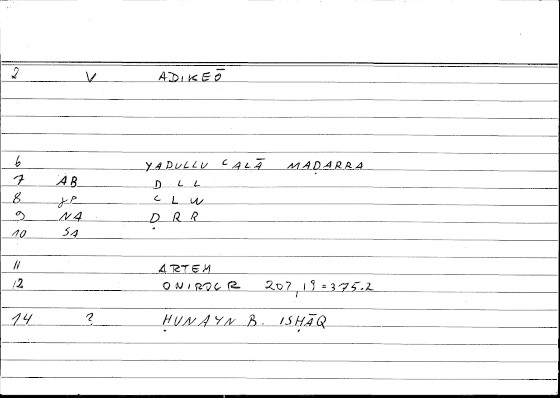 2 V ADIKEŌ
6 YADULLU ʿALĀ MAḌARRA
7 AB D L L
8 ʿ L W
9 NA Ḍ R R
10 SA
11 ARTEM
12 ONIROCR 207,19 = 375.2
14 ? ḤUNAYN B. ISḤĀQ